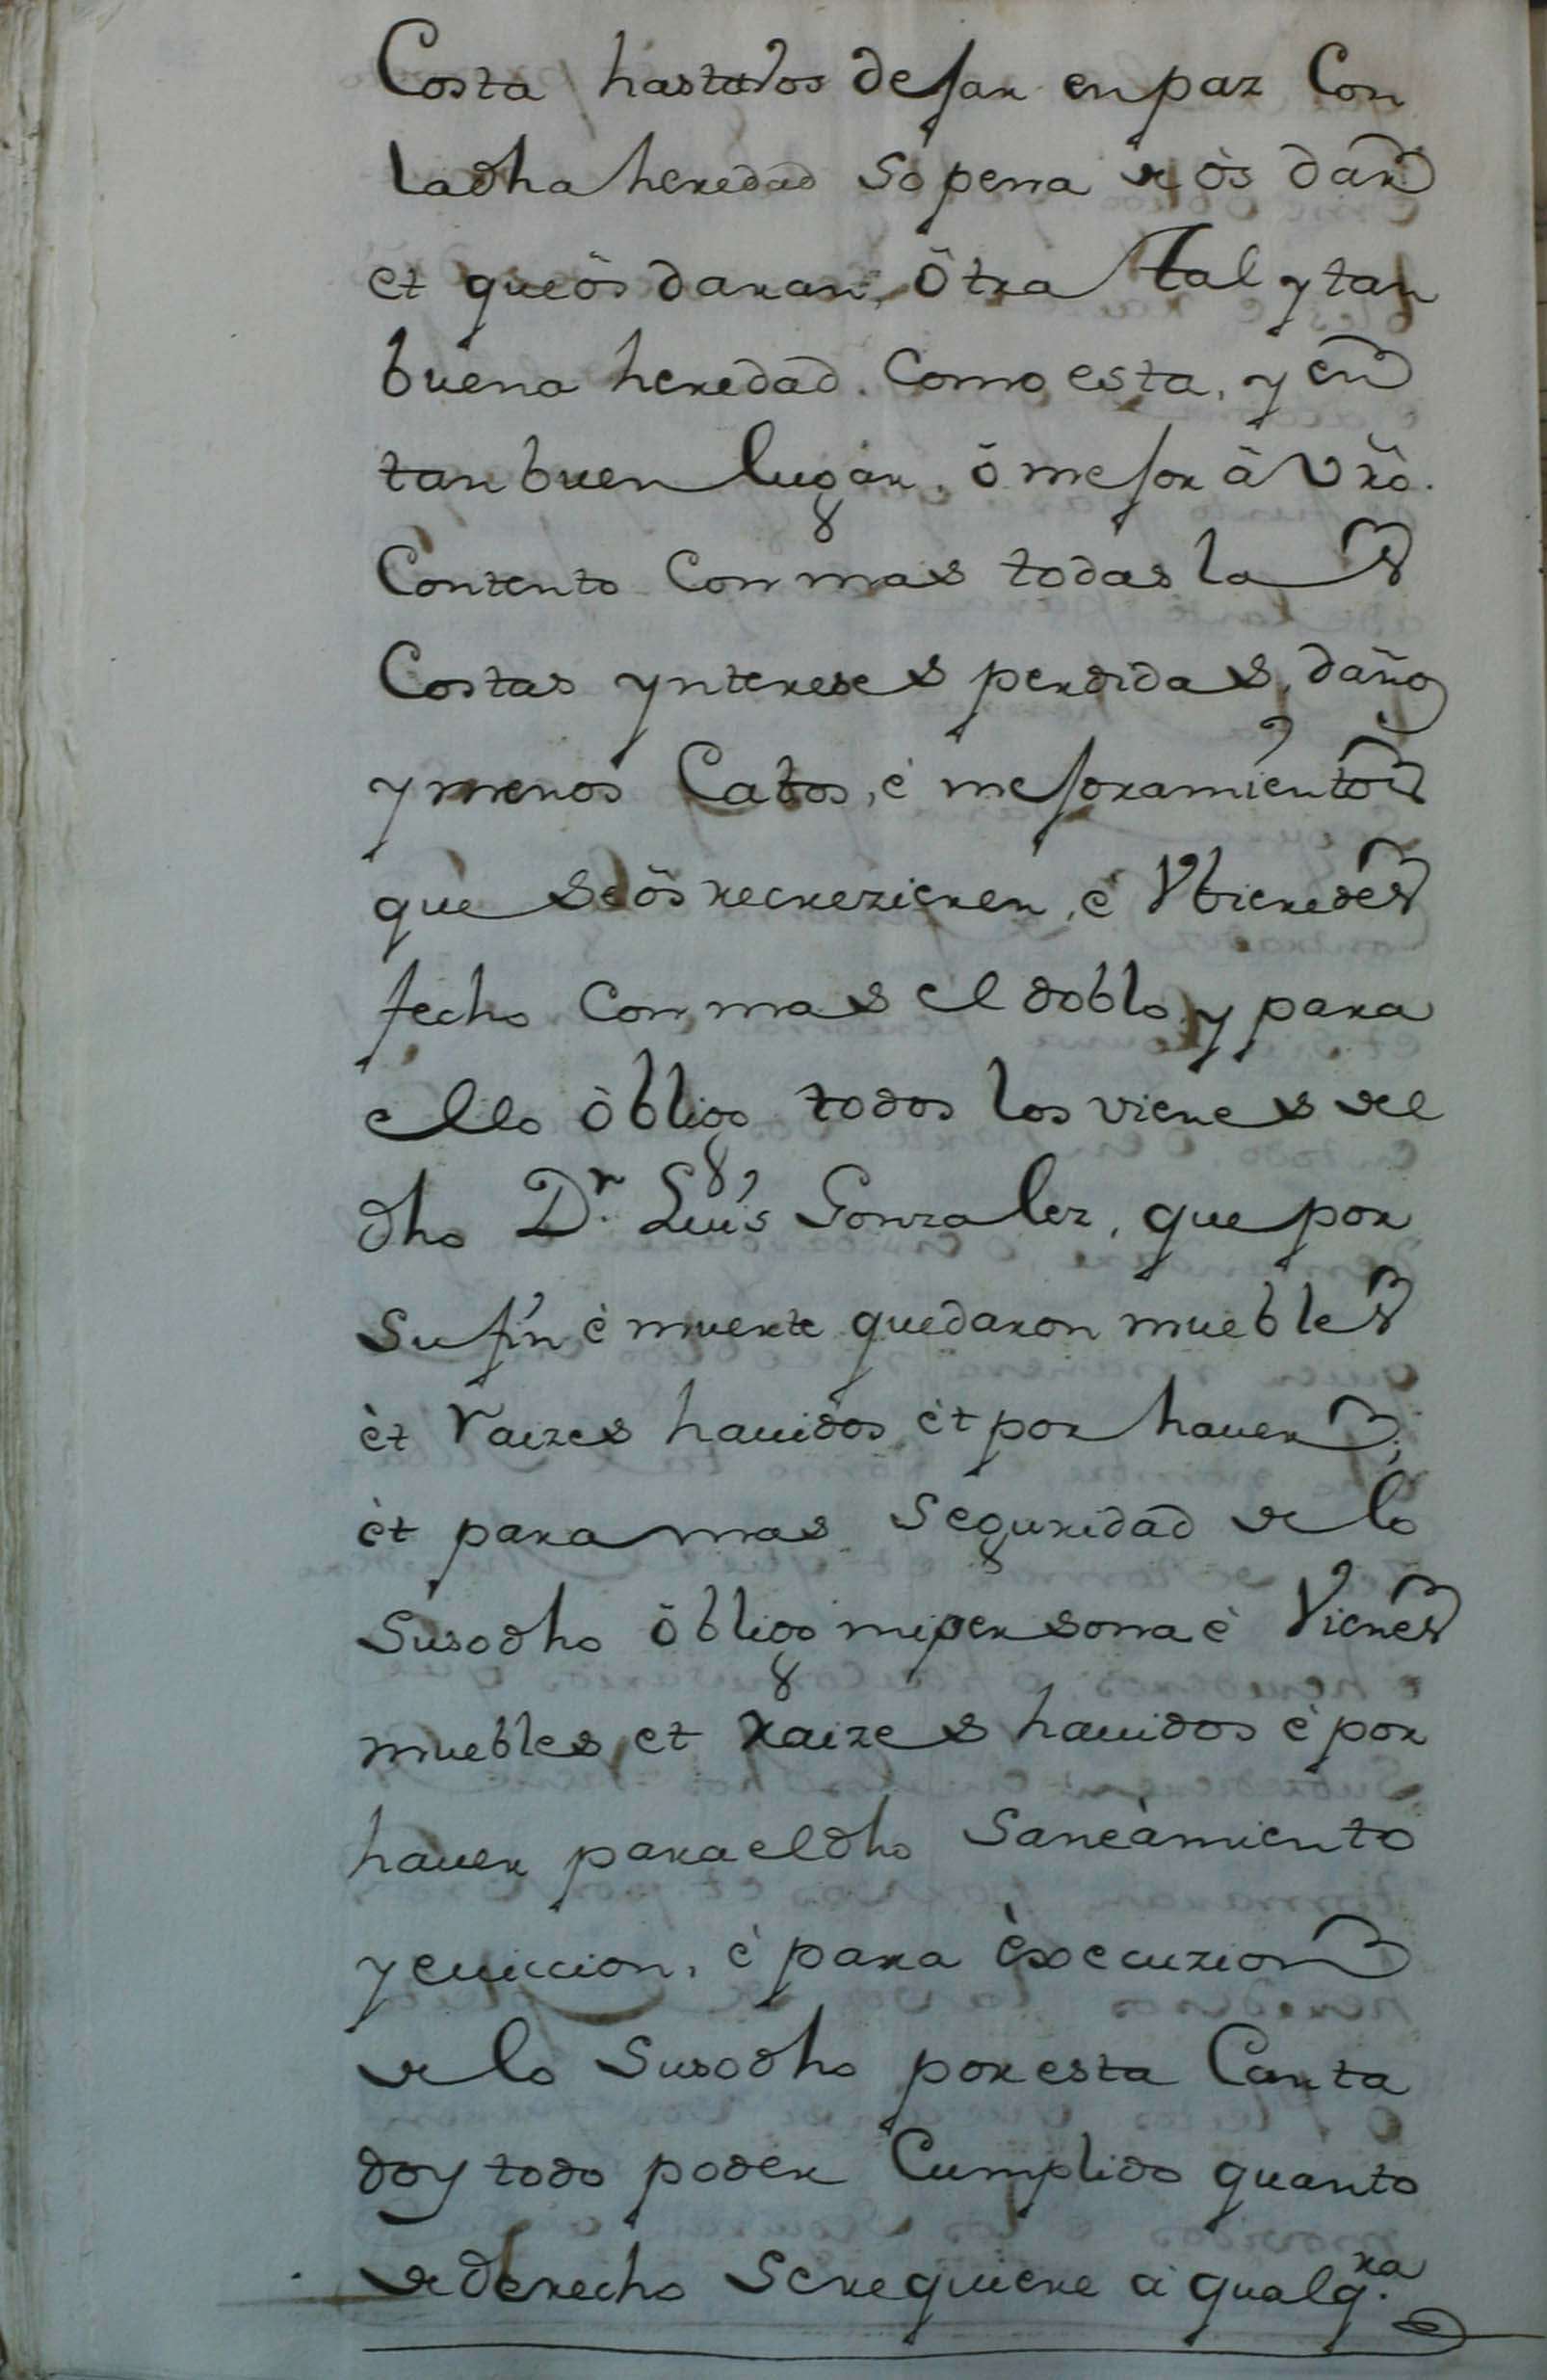 Costa hastavos dejar en paz Con
ladha heredad so pena de òs dar
et queòs daran, òtra tal y tan
buena heredad. Como esta, y en
tan buen lugar, ò mejor à vr̃o.
Contento Con mas todas las
Costas yntereses perdidas, daños
y menos Cabos, è mejoramientos
que seòs recrezieren, è Vbieredes
fecho Con mas el doblo, y para
ello òbligo todos los vienes del
dho Dr. Luis Gonzalez, que por
su fin è muerte quedaron muebles
èt raizes hauidos èt por hauer;
èt para mas seguridad de lo
Susodho òbligo mi persona è Vienes
muebles, et raizes hauidos è por
hauer para el dho Saneàmiento
y euiccion, è para èxecuzion
de lo Susodho por esta Carta
doy todo poder Cumplido quanto
de derecho Se requiere à qualq.ra